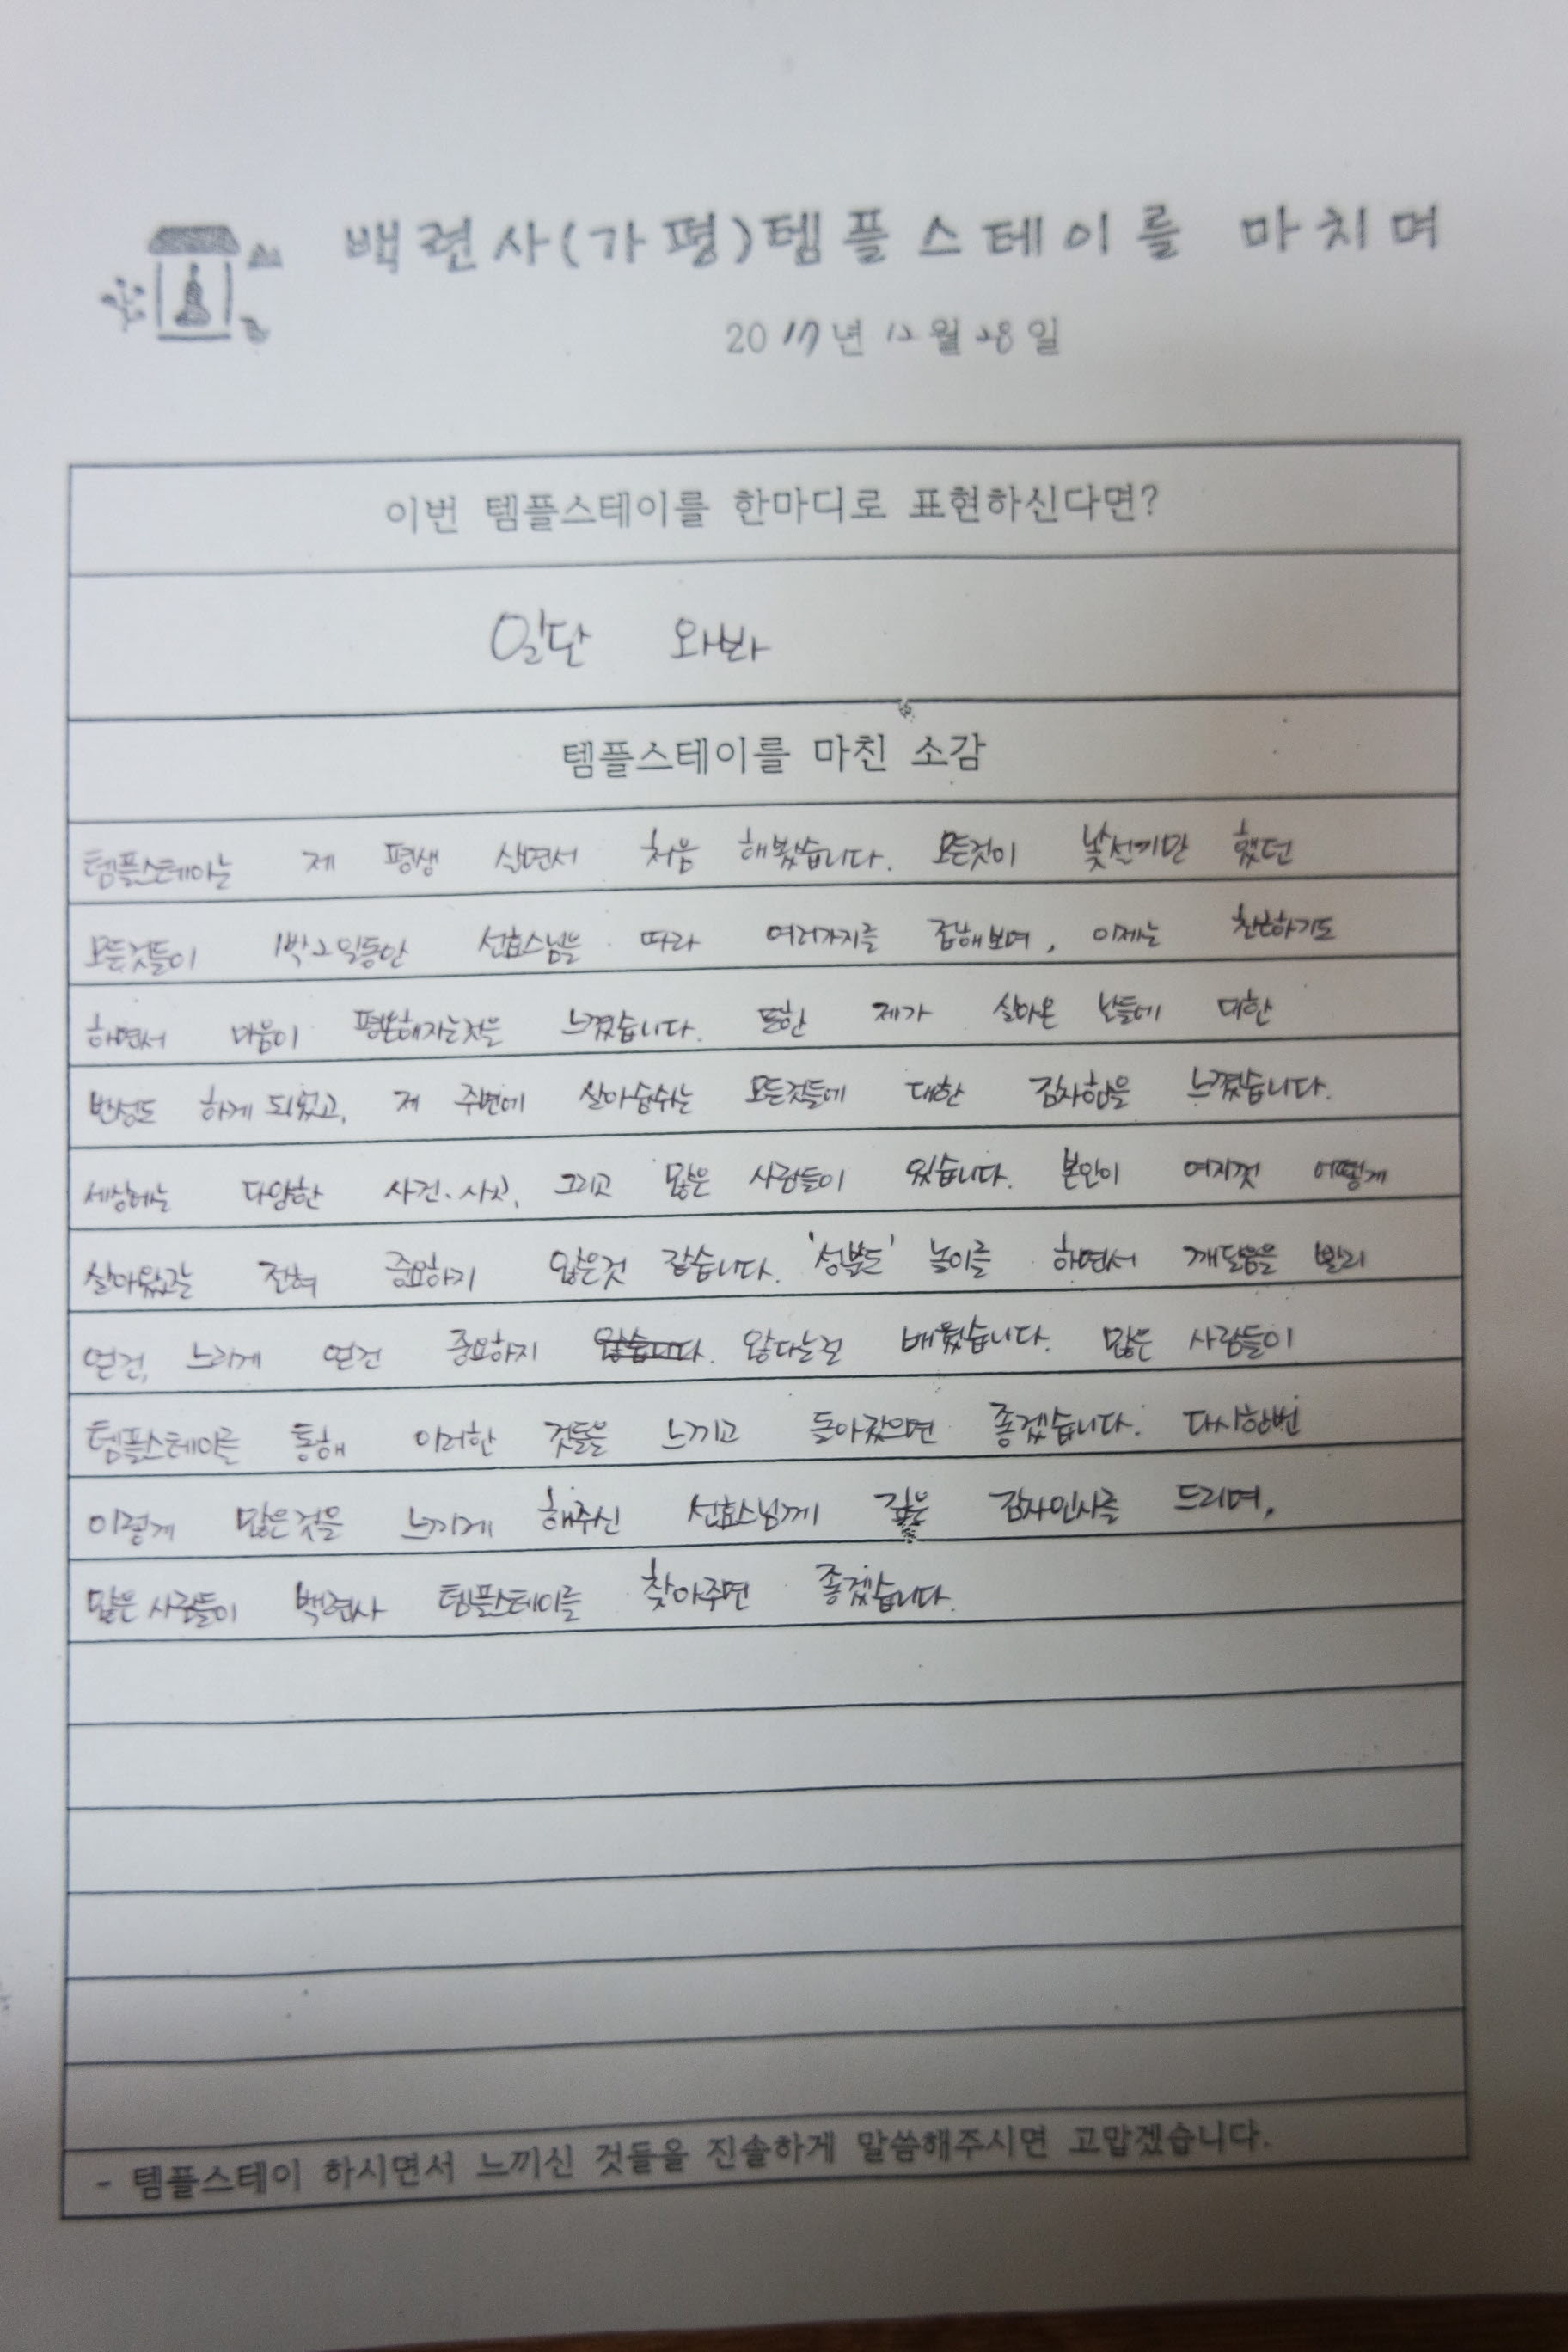 백련사(가평)템플스테이를 마치며
2017년 12월 28일
이번 템플스테이를 한마디로 표현하신다면?
일단 와봐
템플스테이를 마친 소감
템플스테이는 제 평생 살면서 처음 해봤습니다. 모든것이 낯설기만 했던
모든것들이 1박2일동안 선효스님을 따라 여러가지를 접해보며, 이제는 친근하기도
하면서 마음이 평온해지는것을 느꼈습니다. 또한 제가 살아온 날들에 대한
반성도 하게 되었고, 제 주변에 살아숨쉬는 모든것들에 대한 감사함을 느꼈습니다.
세상에는 다양한 사건·사치, 그리고 많은 사람들이 있습니다. 본인이 여지껏 어떻게
살아왔갈 전혀 중요하지 않은것 같습니다. '성불도' 놀이를 하면서 깨달음을 빨리
얻건, 느리게 얻건 중요하지 않습니다. 않다는걸 배웠습니다. 많은 사람들이
템플스테이를 통해 이러한 것들을 느끼고 돌아갔으면 좋겠습니다. 다시한번
이렇게 많은것을 느끼게 해주신 선효스님께 깊은 감사인사를 드리며,
많은 사람들이 백련사 템플스테이를 찾아주면 좋겠습니다.
- 템플스테이 하시면서 느끼신 것들을 진솔하게 말씀해주시면 고맙겠습니다.